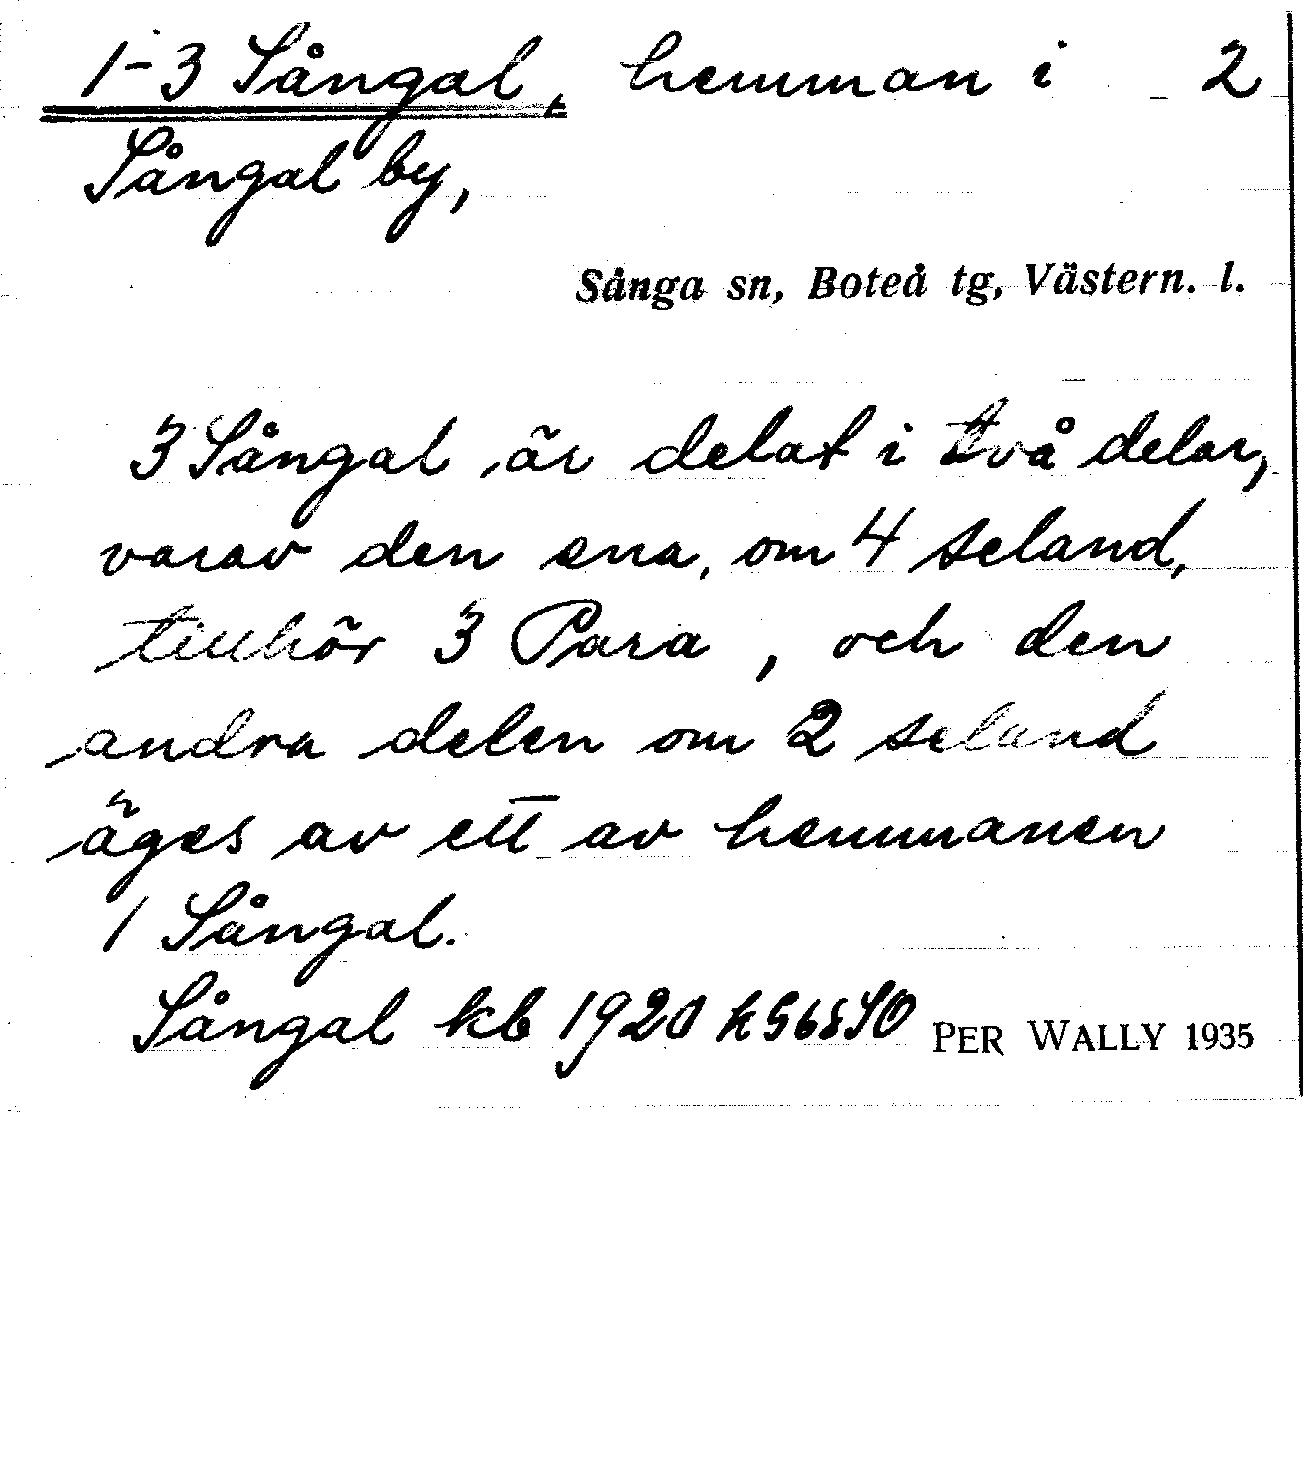 1-3 Sångal, hemman i 2
Sångal by,
Sånga sn, Boteå tg, Västern. l.
3 Sångal är delat i två delar,
varav den ena, om 4 seland,
tillhör 3 Para, och den
andra delen om 2 seland
äges av ett av hemmanen
1 Sångal.
Sångal kb 1920 PER WALLY 1935